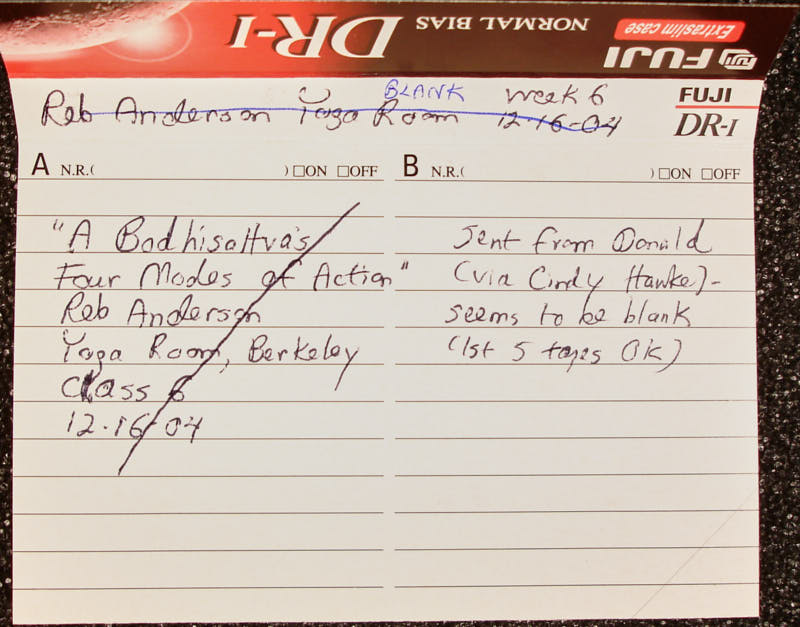 FUJI
Extraslim case
DR-I
NORMAL BIAS
BLANK
Week 6
Reb Anderson Yoga Room 12-16-04
FUJI
DR-I
A N.R.( ) □ON □OFF
B N.R.( ) □ON □OFF
"A Bodhisattva's
Four Modes of Action"
Reb Anderson
Yoga Room, Berkeley
Class 6
12-16-04
Sent from Donald
(via Cindy Hawke) -
seems to be blank
(1st 5 tapes OK)